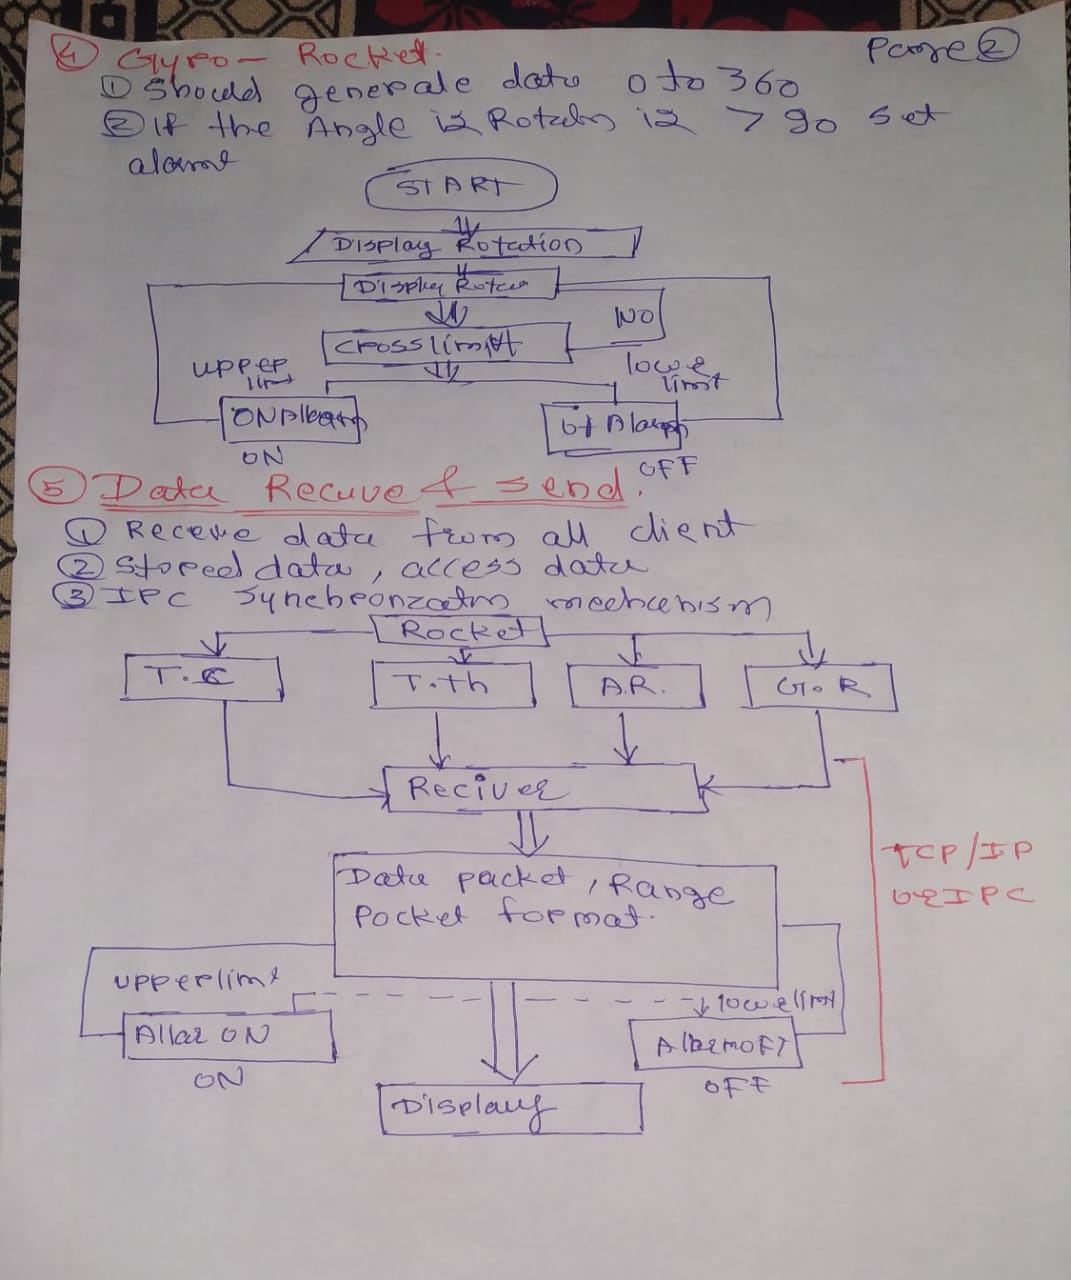 ④ Gyro - Rocket.
Page ②
① Should generate data 0 to 360
② If the Angle is Rotatn is > 90 set
alarm
START
Display Rotation
Display Rotat
NO
Cross limit
upper
limt
lowe
limit
ON Alarm
of Alarm
ON
OFF
⑤ Data Recuve & send.
① Receve data from all client
② Stored data, access data
③ IPC Synchronzatn mechanism
Rocket
T.C
T.Th
A.R.
G.R
Reciver
TCP/IP
or IPC
Data packet, Range
Pocket format.
upperlimt
lowe limt
Allar ON
Alarm OFF
ON
OFF
Display